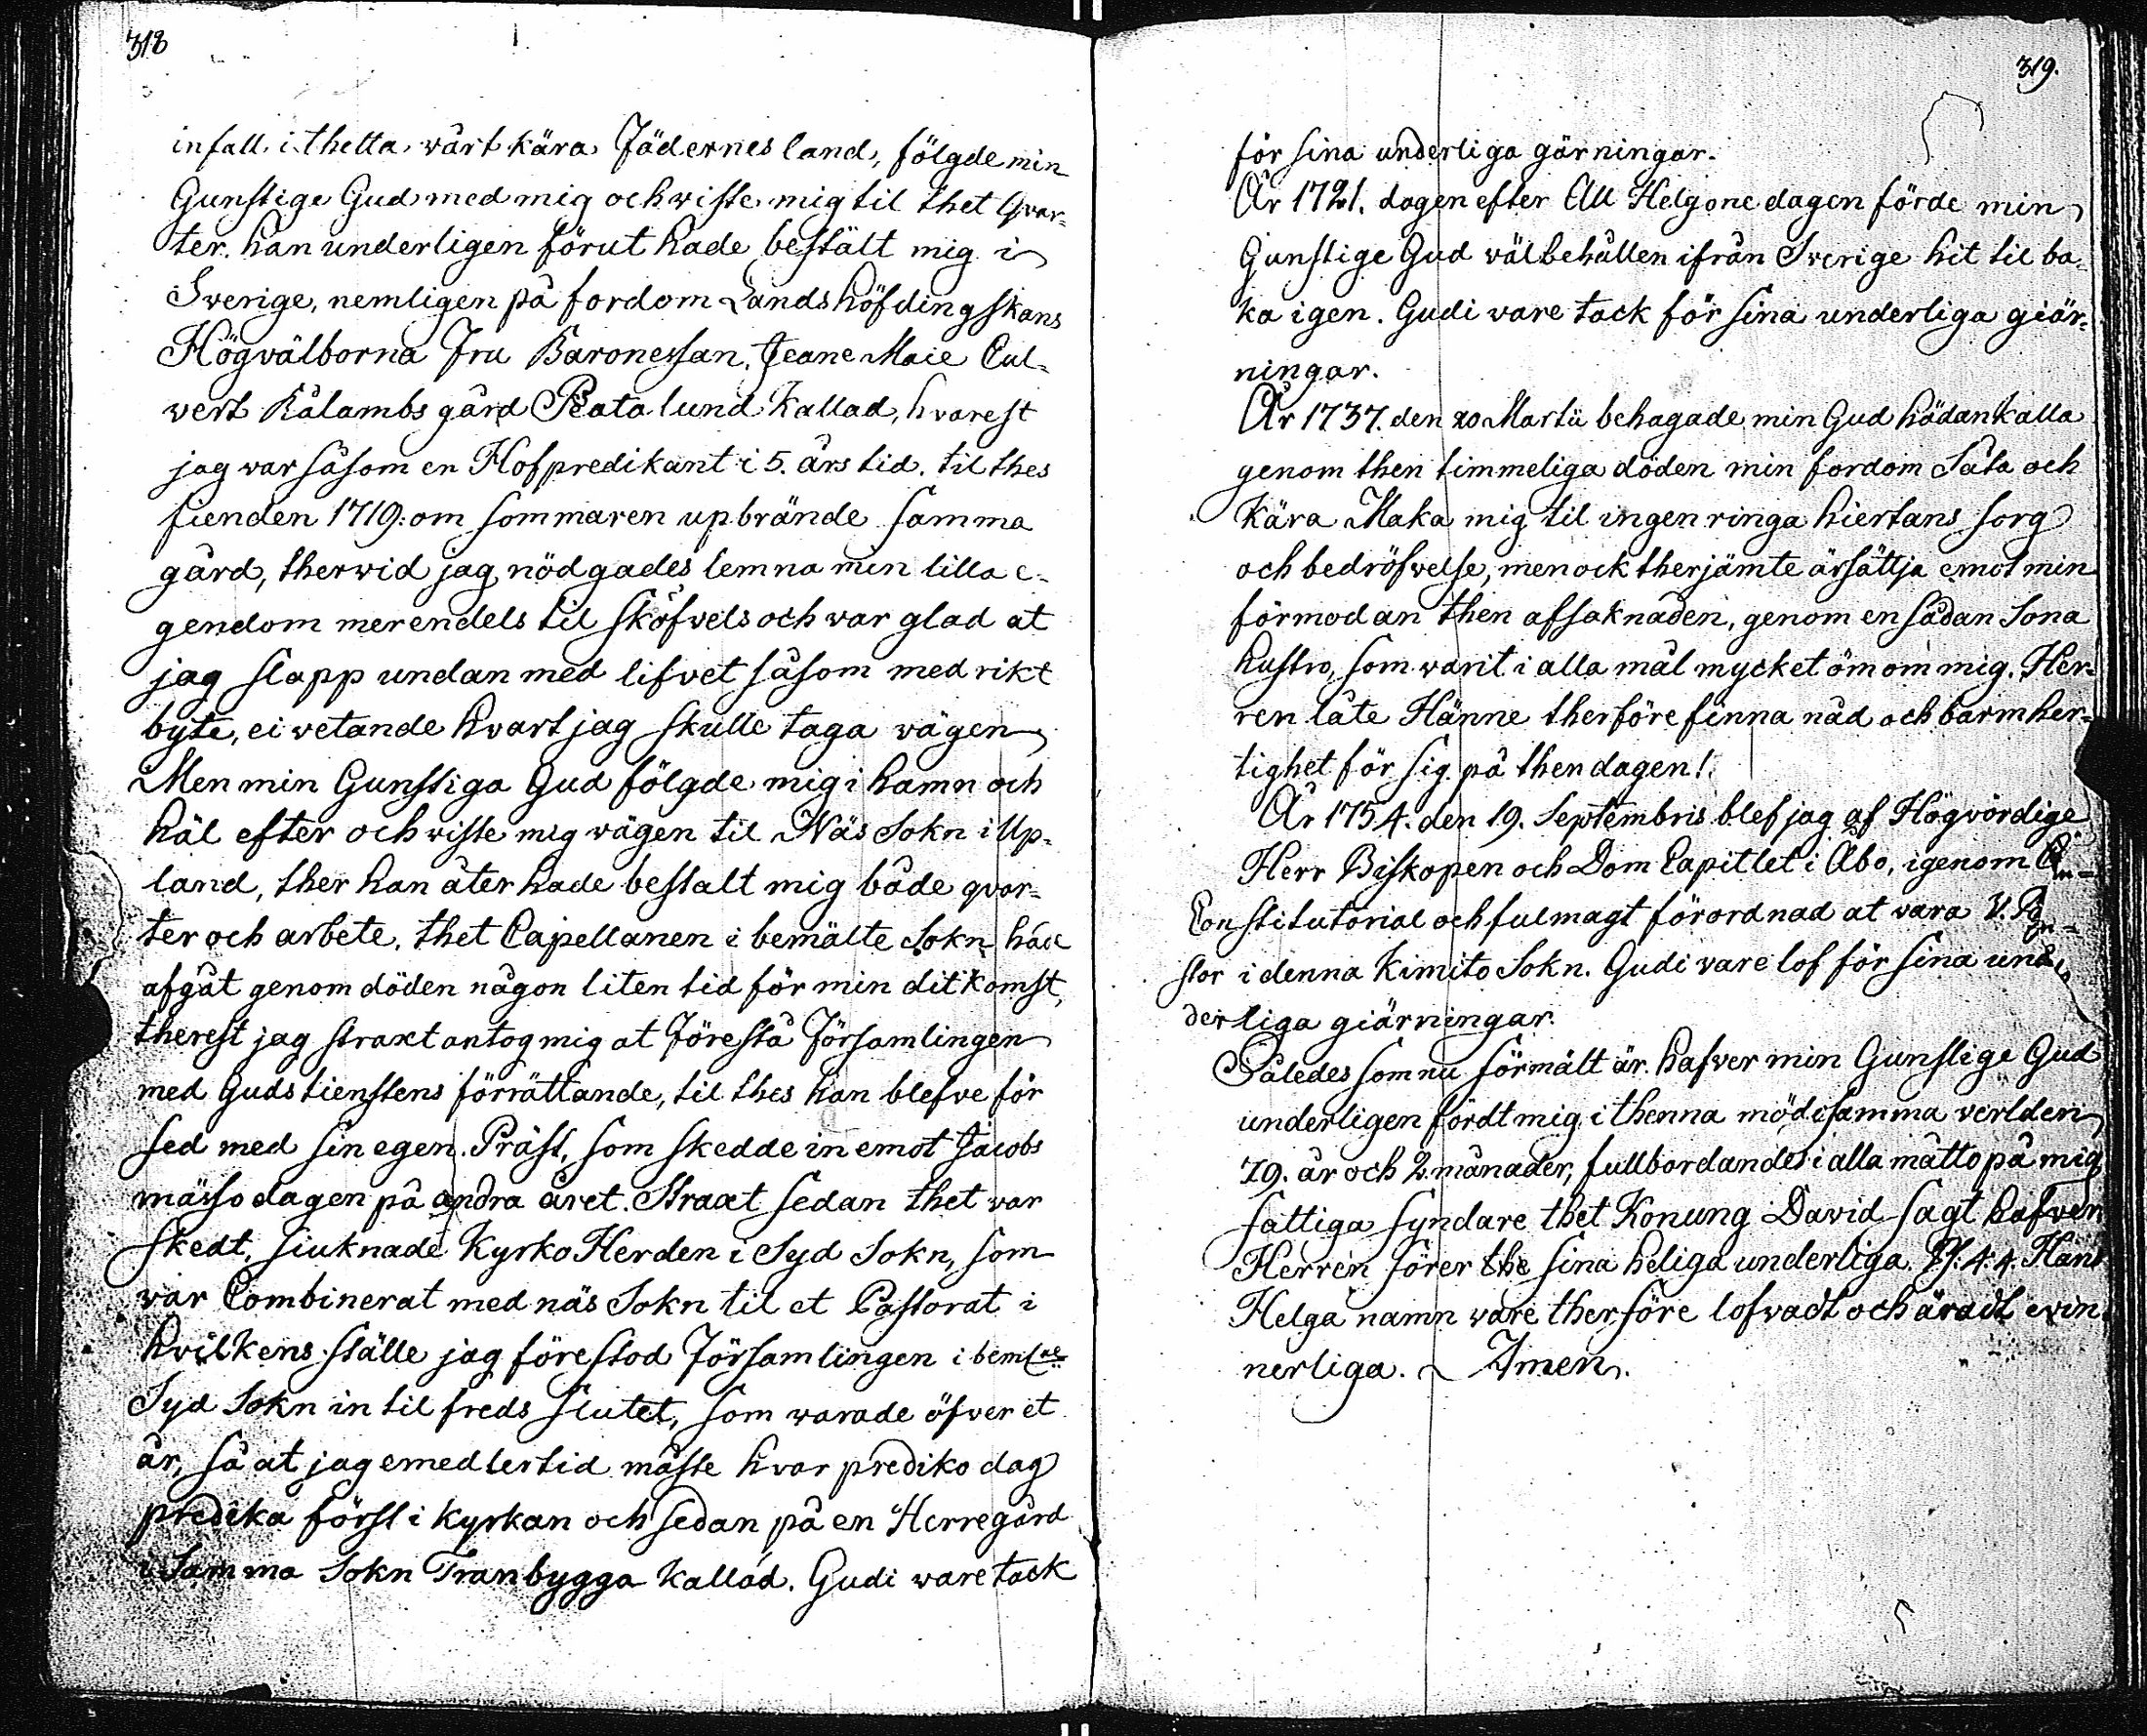 318
infall i thetta vårt kära Fädernesland, fölgde min
Gunstige Gud med mig och wiste mig til thet Qvar-
ter han underligen förut hade bestält mig i
Sverige, nemligen på fordom Landshöfdingskans
Högvälborna Fru Baronessan, Jeane Maie Cul-
vert Kålambs gård Beatalund kallad, hvarest
jag var såsom en Hofpredikant i 5. års tid, til thes
fienden 1719. om sommaren upbrände samma
gård, therwid jag nödgades lemna min lilla e-
gendom merendels til sköfvels och var glad at
jag slapp undan med lifvet såsom med rikt
byte, ei vetande hvart jag skulle taga vägen
Men min Gunstiga Gud fölgde mig i hamn och
häl efter och viste mig vägen til Näs Sokn i Up-
land, ther han åter hade bestalt mig både qvar-
ter och arbete, thet Capellanen i bemälte Sokn had
afgåt genom döden någon liten tid för min ditkomst,
therest jag straxt antog mig at Förestå Församlingen
med Gudstienstens förrättande, til thes han blefve för
sed med sin egen Präst, som skedde in emot Jacobs
mässodagen på andra året. Straxt sedan thet var
skedt, siuknade KyrkoHerden i Syd Sokn, som
var Combinerat med näs Sokn til et Pastorat i
hvilkens ställe jag förestod Församlingen i bemlte
Syd Sokn in til freds slutet, som warade öfver et
år, så at jag emedlertid måste hvar prediko dag
predika först i kyrkan och sedan på en Herregård
i Samma Sokn Tranbygga kallad. Gudi ware tack
319.
för sina underliga gärningar.
År 1721. dagen efter All Helgone dagen förde min
Gunstige Gud välbehållen ifrån Sverige hit til ba-
ka igen. Gudi vare tack för sina underliga giär-
ningar.
År 1737. den 20 Martii behagade min Gud hädankalla
genom then timmeliga döden min fordom Säta och
Kära Maka mig til ingen ringa hiertans sorg
och bedröfvelse, men ock therjämte ärsättja emot min
förmodan then afsaknaden, genom en sådan Sona
hustro, som varit i alla mål mycket öm om mig. Her-
ren låte Hänne therföre finna nåd och barmher-
tighet för sig på then dagen!
År 1754. den 19. Septembris blef jag af Högvördige
Herr Biskopen och Dom Capitlet i Åbo, igenom
Constitutorial och fulmagt förordnad at vara V. Pa-
stor i denna Kimito Sokn. Gudi vare lof för sina und
derliga giärningar.
Således som nu förmält är. hafver min Gunstige Gud
underligen fördt mig i thenna mödesamma verlden
79. år och 2 månader, fullbordandes i alla måtto på mig
fattiga syndare thet Konung David sagt hafver
Herren förer the sina heliga underliga. Ps. 4: 4. Hans
Helga namn vare therföre lofvadt och äradt evin
nerliga. Amen.